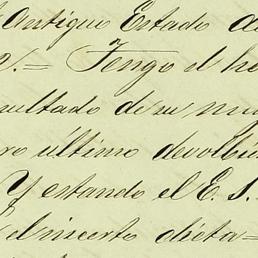 Antiguo Estado de
.= Tengo el ho
sultado de su nu
ro último devolvién
Y estando el E. S.
el inserto dicta=